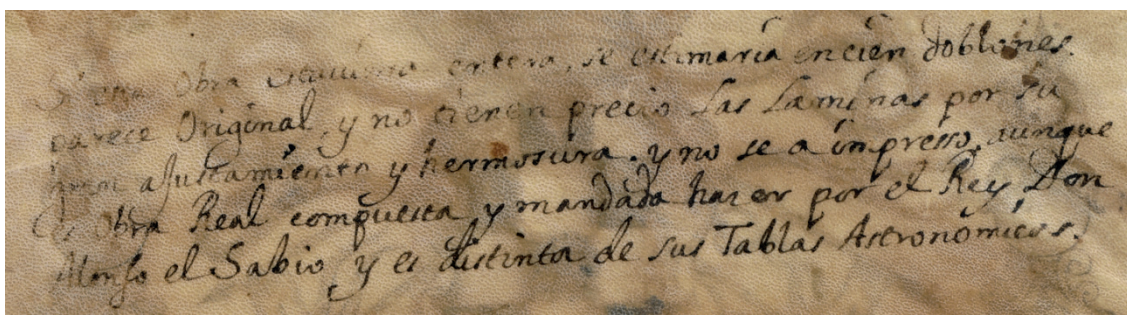 Si esta Obra estuviera entera, se estimaría en cien doblones.
parece Original, y no tienen precio las Laminas por su
buen ajustamiento y hermosura. y no se a impresso, aunque
es Obra Real compuesta y mandada hazer por el Rey Don
Alonso el Sabio, y es distinta de sus Tablas Astronómicas.